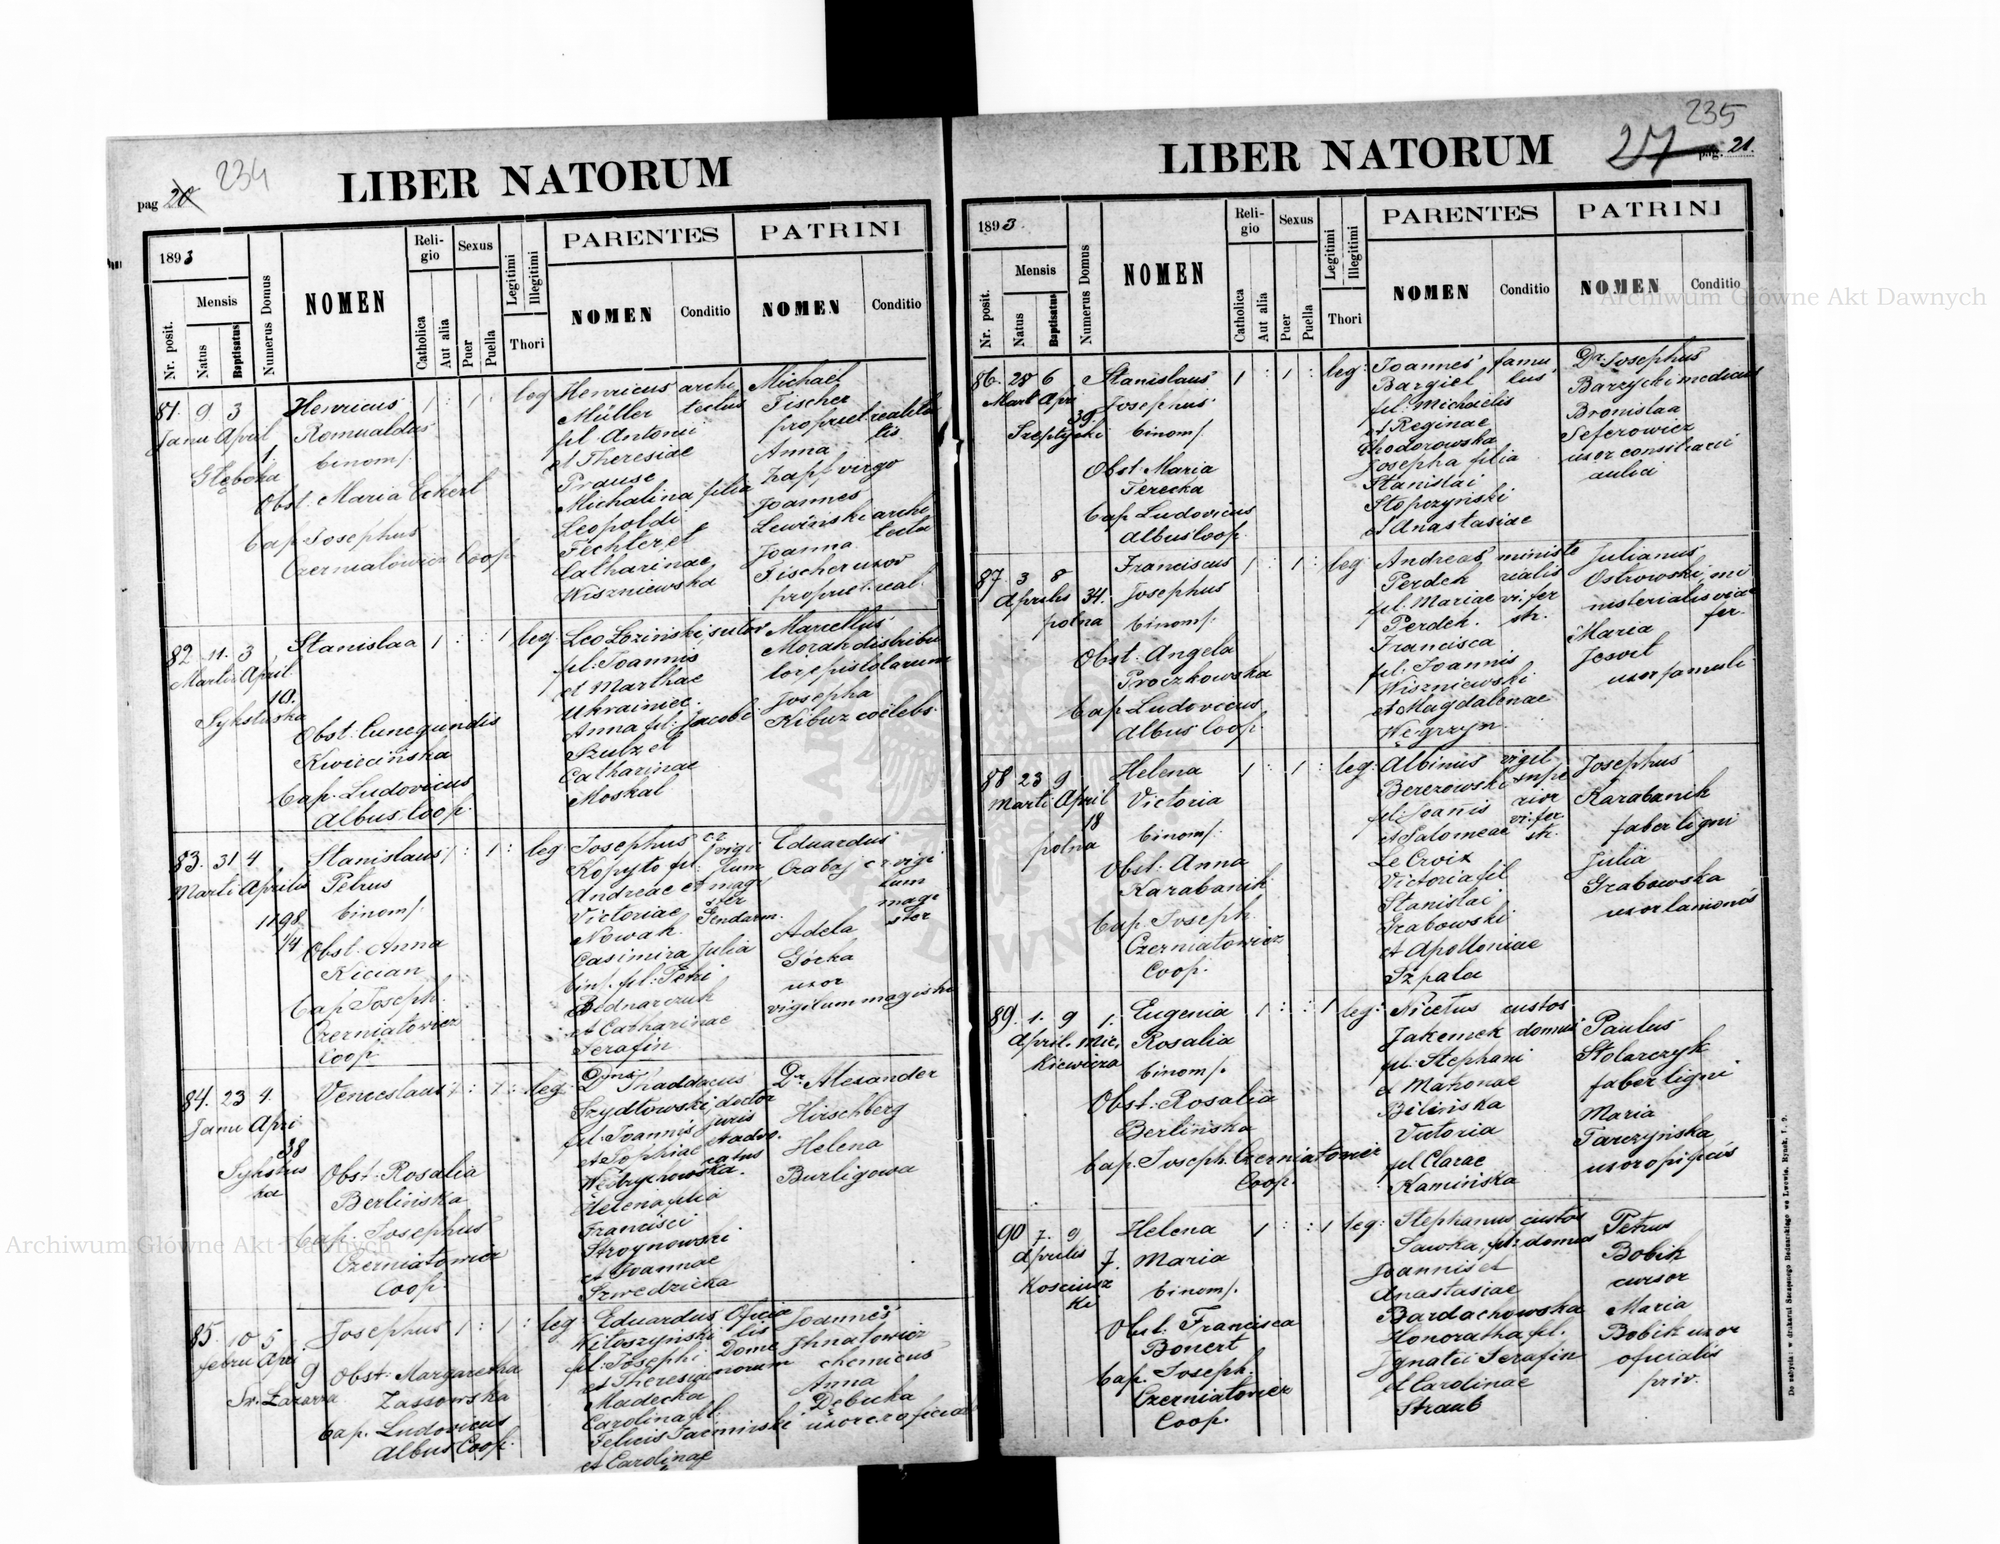 234
pag 20
LIBER NATORUM
1893
Nr. posit.
Mensis
Natus
Baptisatus
Numerus Domus
NOMEN
Reli-
gio
Catholica
Aut alia
Sexus
Puer
Puella
Legitimi
Illegitimi
Thori
PARENTES
NOMEN
Conditio
PATRINI
NOMEN
Conditio
81. 9 3
Janu April
1.
Głęboka
Henricus
Romualdus
binom.
Obst. Maria Eckert
Cap Josephus
Czerniatowicz Coop
1 : 1 :
leg
Henricus archi
Müller tectus
fil Antonii
et Theresiae
Prause
Michalina filia
Leopoldi
Fechter et
Catharinae
Wiszniewska
Michael
Fischer
propriet realita
tis
Anna
Zapf virgo
Joannes
Lewiński archi
tectu
Joanna
Fischer uxor
propriet. real.
82 11. 3
Martii April
10.
Sykstuska
Stanislaa
Obst. Cunegundis
Kwiecińska
Cap. Ludovicus
Albus Coop
1 : : 1
leg.
Leo Łoziński sutor
fil. Joannis
et Marthae
Ukrainiec
Anna fil. Jacobi
Szulz et
Catharinae
Moskal
Marcellus
Morah distribu
tor epistolarum
Josepha
Kibuz coelebs
83. 31 4
Marti Aprilis
1198.
1/4
Stanislaus
Petrus
binom.
Obst. Anna
Kician
Cap Joseph.
Czerniatowicz
Coop
1 : 1 :
leg
Josephus cr
Kopyto fil. vigi
lum
Andreae et magi
ster
Victoriae Gendarm.
Nowak
Casimira Julia
bin. fil. Petri
Bednarczuk
et Catharinae
Serafin
Eduardus
Ozabaj cr vigi
lum
magi
ster
Adela
Gócka
uxor
vigilum magistri
84. 23 4.
Janu Apri
38
Sykstus
ka
Venceslaus
Obst. Rosalia
Berlińska
Cap. Josephus
Czerniatowicz
Coop.
1 : 1 :
leg
Dnus Thaddaeus
Szydłowski doctor
fil. Joannis juris
et Sophiae advo.
catus
Helena filia
Francisci
Stroynowski
et Joannae
Szwedzicka
Dr Alexander
Hirschberg
Helena
Burligowa
85. 10 5
Febru Apri
9
Sw. Łazarza
Josephus
Obst. Margaretha
Zassowska
Cap. Ludovicus
Albus Coop.
1 : 1 :
leg
Eduardus Oficia
Witoszyński lis
fil. Josephi Dome
et Theresiae norum
Madecka
Carolina fil.
Felicis Jasminski
et Carolinae
Joannes
Ihnatowicz
chemicus
Anna
Dębucka
uxor cr oficial
235
27
pag. 21.
LIBER NATORUM
1893.
Nr. posit.
Mensis
Natus
Baptisatus
Numerus Domus
NOMEN
Reli-
gio
Catholica
Aut alia
Sexus
Puer
Puella
Legitimi
Illegitimi
Thori
PARENTES
NOMEN
Conditio
PATRINI
NOMEN
Conditio
86. 28 6
Mart Apri
39.
Szeptycki
Stanislaus
Josephus
binom.
Obst. Maria
Terecka
Cap Ludovicus
Albus Coop.
1 : 1 :
leg:
Joannes famu
Bargiel lus
fil. Michaelis
et Reginae
Chodorowska
Josepha filia
Stanislai
Stopczyński
et Anastasiae
Dr. Josephus
Barzycki medicus
Bronislaa
Seferowicz
uxor consiliarii
aulici
87. 3 8
Aprilis 34.
polna
Franciscus
Josephus
binom.
Obst. Angela
Proczkowska
Cap. Ludovicus
Albus Coop.
1 : 1 :
leg
Andreas ministe
Perdek rialis
fil. Mariae vi. fer
Perdek. str.
Francisca
fil. Joannis
Wiszniewski
et Magdalenae
Węgrzyn.
Julianus
Ostrowski mi
nisterialis viae
fer.
Maria
Jesvet
uxor famuli
88 23 9
Marti April
18
polna
Helena
Victoria
binom.
Obst. Anna
Karabanik
Cap. Joseph.
Czerniatowicz
Coop.
1 : 1 :
leg:
Albinus vigil
Berezowski supe
fil. Joannis rior
et Salomeae vi. fer.
str.
Le Croix
Victoria fil
Stanislai
Grabowski
et Apolloniae
Szpala
Josephus
Karabanik
faber ligni
Julia
Grabowska
uxor lanionis
89. 1. 9 1.
April. Mic.
kiewicza
Eugenia
Rosalia
binom.
Obst. Rosalia
Berlińska
Cap. Joseph. Czerniatowicz
Coop.
1 : : 1
leg:
Nicetus custos
Jakemek domus
fil. Stephani
et Matronae
Bilińska
Victoria
fil Clarae
Kamińska
Paulus
Stolarczyk
faber ligni
Maria
Tarczyńska
uxor opificis
90 7. 9
Aprilis 7.
Kosciusz
ki
Helena
Maria
binom.
Obst. Francisca
Bonert
Cap. Joseph.
Czerniatowicz
Coop.
1 : : 1
leg:
Stephanus custos
Sawka, fil. domus
Joannis et
Anastasiae
Bardachowska
Honoratha fil.
Ignatii Serafin
et Carolinae
Straub
Petrus
Bobik
cursor
Maria
Bobik uxor
oficialis
priv.
Do nabycia: w drukarni Szczęsnego Bednarskiego we Lwowie, Rynek, l. 9.
Archiwum Główne Akt Dawnych
Archiwum Główne Akt Dawnych